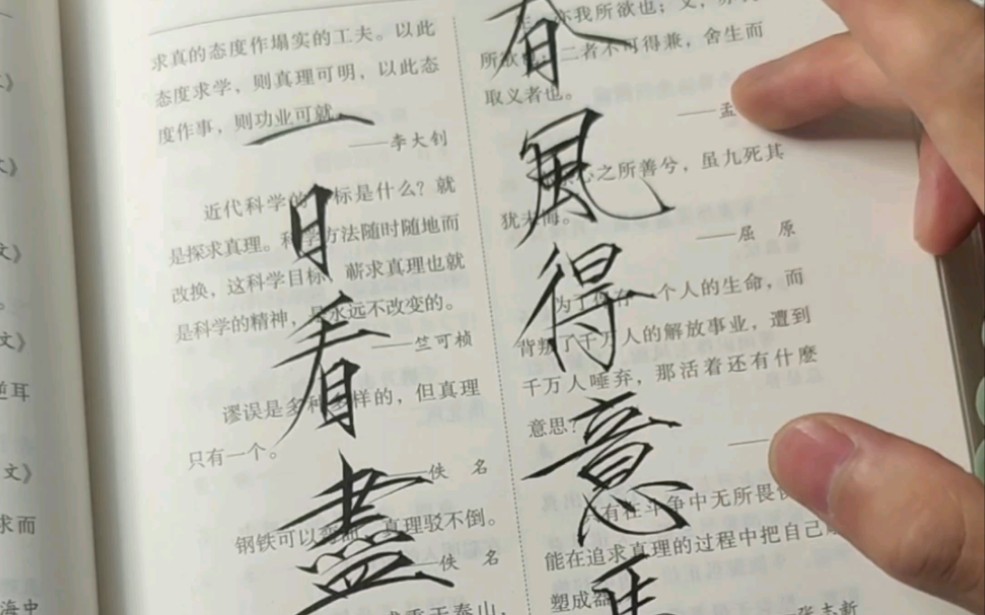 春風得意馬
一日看盡
求真的态度作塌实的工夫。以此
态度求学，则真理可明，以此态
度作事，则功业可就。
——李大钊
近代科学的 标是什么？就
是探求真理。科学方法随时随地而
改换，这科学目标，蕲求真理也就
是科学的精神，是永远不改变的。
——竺可桢
谬误是多种多样的，但真理
只有一个。
——佚 名
钢铁可以弯曲，真理驳不倒。
——佚 名
重于泰山，
亦我所欲也；义，亦
所欲也；二者不可得兼，舍生而
取义者也。
——孟
心之所善兮，虽九死其
犹未悔。
——屈 原
为了保存一个人的生命，而
背叛了千万人的解放事业，遭到
千万人唾弃，那活着还有什麼
意思？
只有在斗争中无所畏惧
能在追求真理的过程中把自己
塑成器
——张志新
文》
逆耳
文》
求而
海中